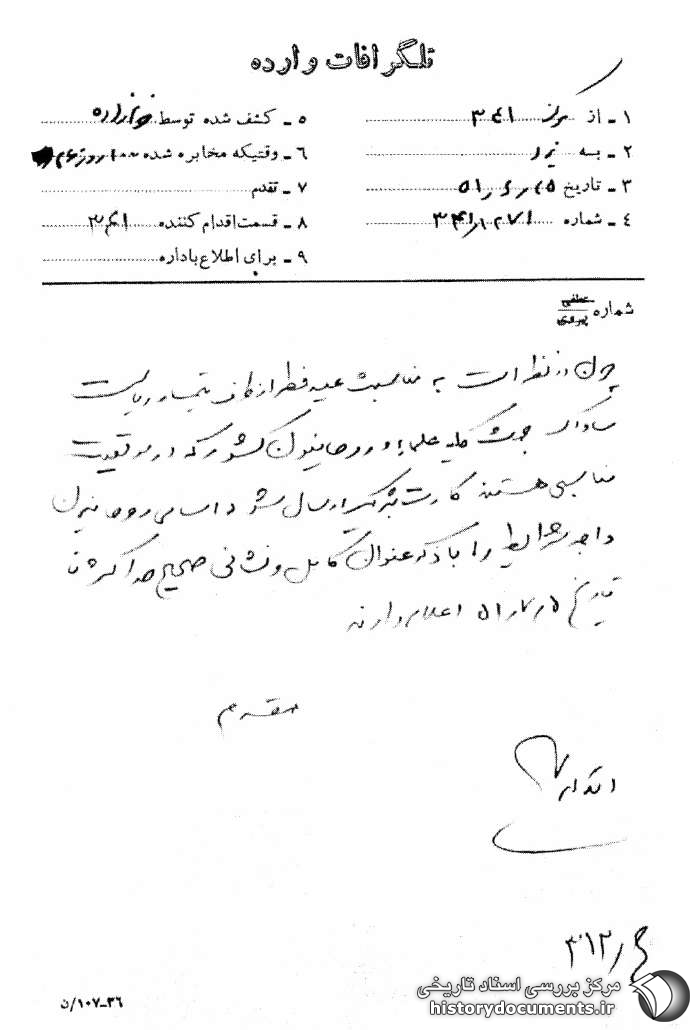 تلگرافات وارده
۱ ـ از مرکز ۳۴۱
۲ ـ به یزد
۳ ـ تاریخ
۴ ـ شماره
۵ ـ کشف شده توسط
۶ ـ وقتیکه مخابره شده
۷ ـ تقدم
۸ ـ قسمت اقدام کننده ۳۴۱
۹ ـ برای اطلاع باداره
شماره عطفی پیروی
چون در نظر است به مناسبت عید فطر از طرف تیمسار ریاست
ساواک جهت کلیه علماء و روحانیون کشور که در موقعیت
مناسبی هستند کارت تبریک ارسال شود اسامی روحانیون
واجد شرایط را با ذکر عنوان کامل و نشانی صحیح حداکثر تا
تاریخ ۵ر۷ر۵۱ اعلام دارند
مقدم
۳۱۲
۳۶-۱۰۷/ن
مرکز بررسی اسناد تاریخی
historydocuments.ir